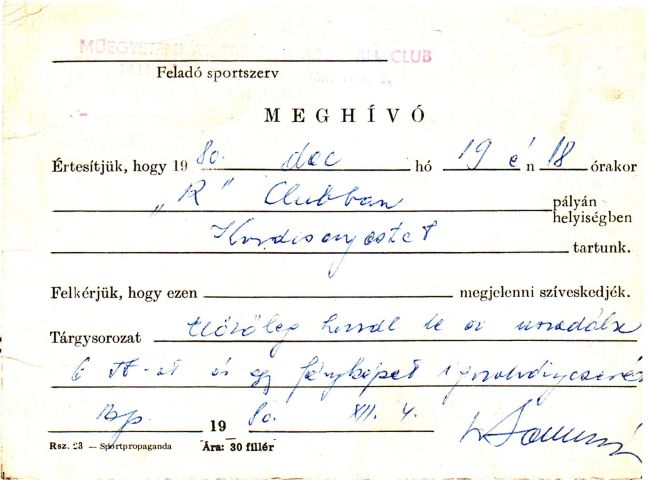 MŰEGYETEMI CLUB
Feladó sportszerv
MEGHÍVÓ
Értesítjük, hogy 1980. dec hó 19 é n 18 órakor
„R" Clubban pályán
helyiségben
tartunk.
Felkérjük, hogy ezen megjelenni szíveskedjék.
Tárgysorozat Előzőleg hozd le az
6 Ft-ot és egy fényképet
Bp. 1980. XII. 4.
Rsz. 23 — Sportpropaganda Ára: 30 fillér